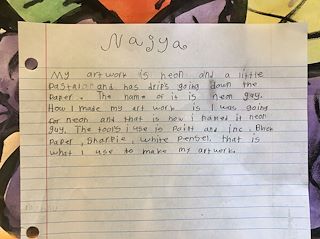 Najya
My artwork is neon and a little
Pastaion and has drips going down the
Paper. The name of it is neon guy.
How I made my art work is I was going
for neon and that is how i named it neon
guy. The tools i use is paint and inc, Black
Paper, Sharpie, white pensel. that is
what I use to make my artwork.